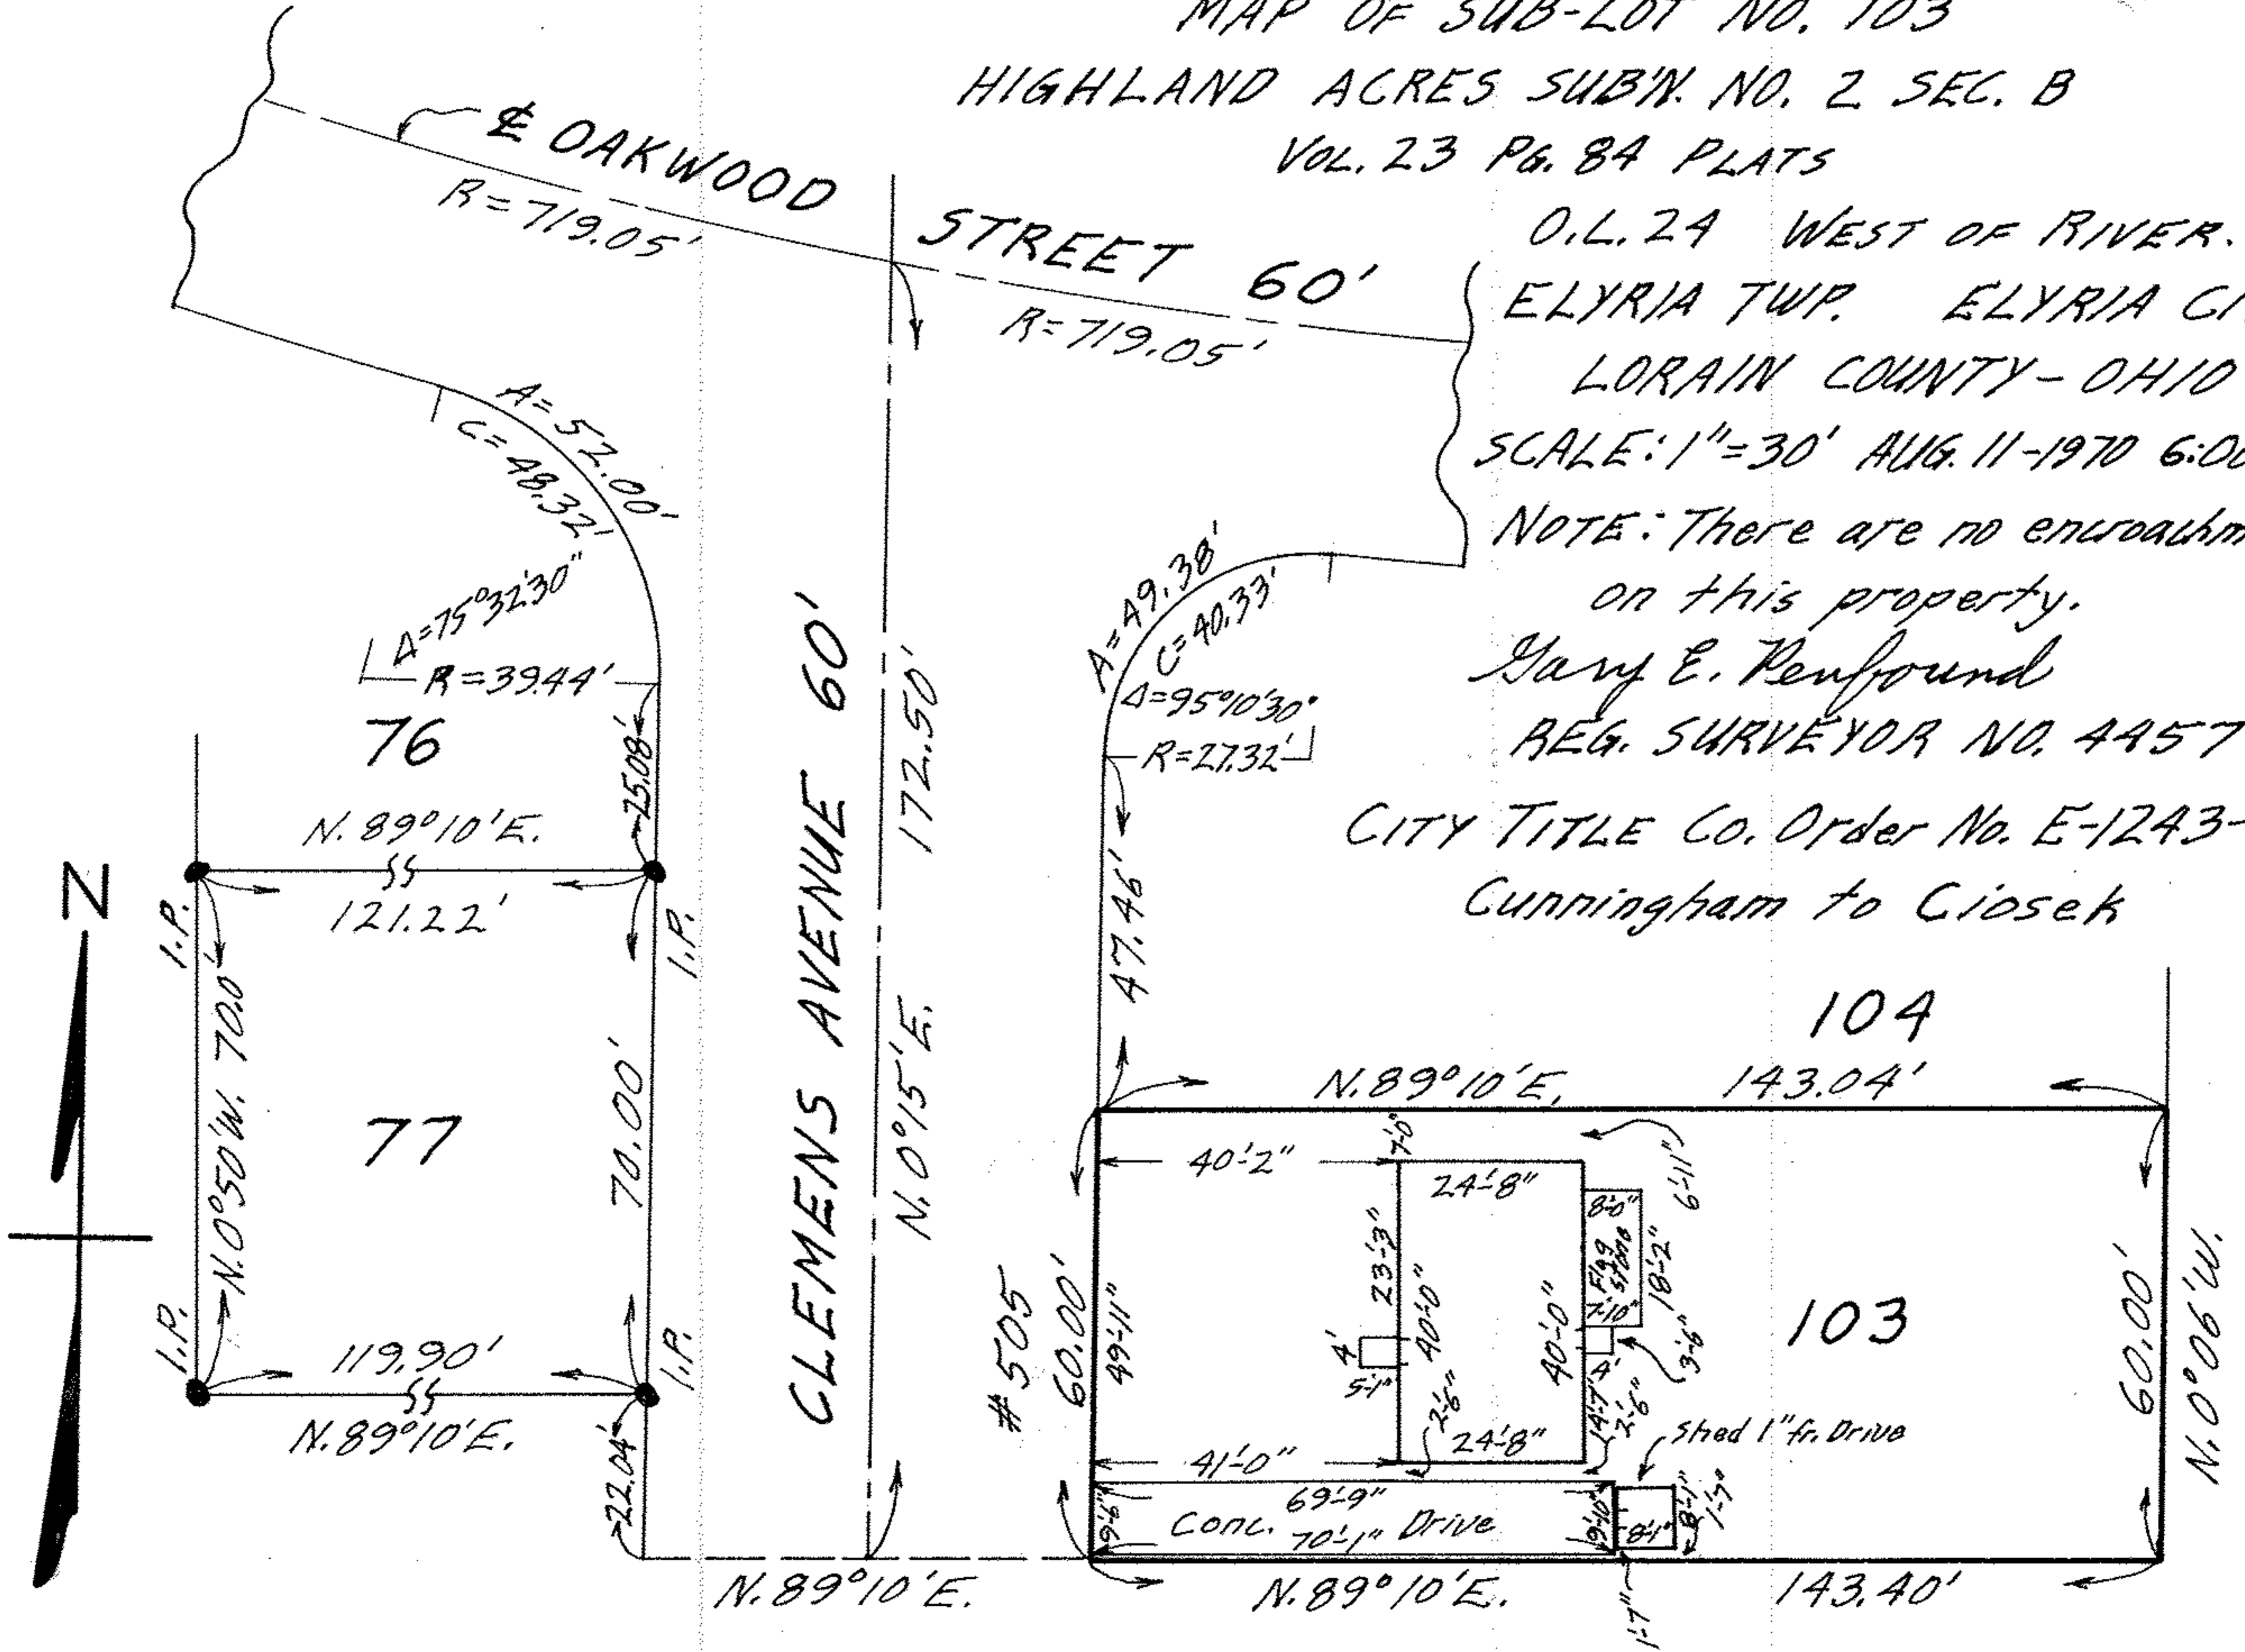 MAP OF SUB-LOT NO. 103
HIGHLAND ACRES SUB'N. NO. 2 SEC. B
VOL. 23 PG. 84 PLATS
O.L. 24 WEST OF RIVER.
ELYRIA TWP. ELYRIA
LORAIN COUNTY - OHIO
SCALE: 1"=30' AUG. 11-1970 6:00
NOTE: There are no
on this property.
Gary E. Penfound
REG. SURVEYOR NO. 4457
CITY TITLE CO. Order No. E-1243-
Cunningham to Ciosek
℄ OAKWOOD STREET 60'
R=719.05'
R=719.05'
A=52.00'
C=48.32'
Δ=75°32'30"
R=39.44'
76
25.08'
N. 89°10'E.
121.22'
I.P.
I.P.
N.0°50'W. 70.0'
77
70.00'
I.P.
I.P.
119.90'
N.89°10'E.
22.04'
N
CLEMENS AVENUE 60'
N.0°15'E. 172.50'
N.89°10'E.
A=49.38'
C=40.33'
Δ=95°10'30"
R=27.32'
47.46'
104
N.89°10'E. 143.04'
#505
60.00'
49'-11"
40'-2"
7'-0"
24'-8"
6'-11"
8'-0"
Flag stone
7'-10"
18'-2"
23'-3"
40'-0"
40'-0"
4'
5'-1"
4'
3'-6"
14'-7"
2'-6"
2'-6"
24'-8"
41'-0"
103
60.00'
N.0°06'W.
Shed 1" fr. Drive
69'-9"
Conc. Drive
70'-1"
9'-6"
9'-10"
8'-1"
8'-1"
1'-9"
1'-7"
N.89°10'E. 143.40'